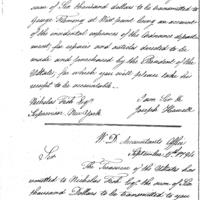 sum of Six thousand dollars to be transmitted to
George Fleming at West point being on account
of the incidental expences of the Ordnance depart-
ment, for repairs and articles directed to be
made and purchased by the President of the
UStates, for which you will please take his
receipt to be accountable.
I am Sir &c
Nicholas Fish Esqr
Joseph Howell
Supervisor New York
W. D. Accountants Office
September 6th 1794
Sir
The Treasurer of the UStates has
remitted to Nicholas Fish Esqr the sum of Six
thousand Dollars to be transmitted to you